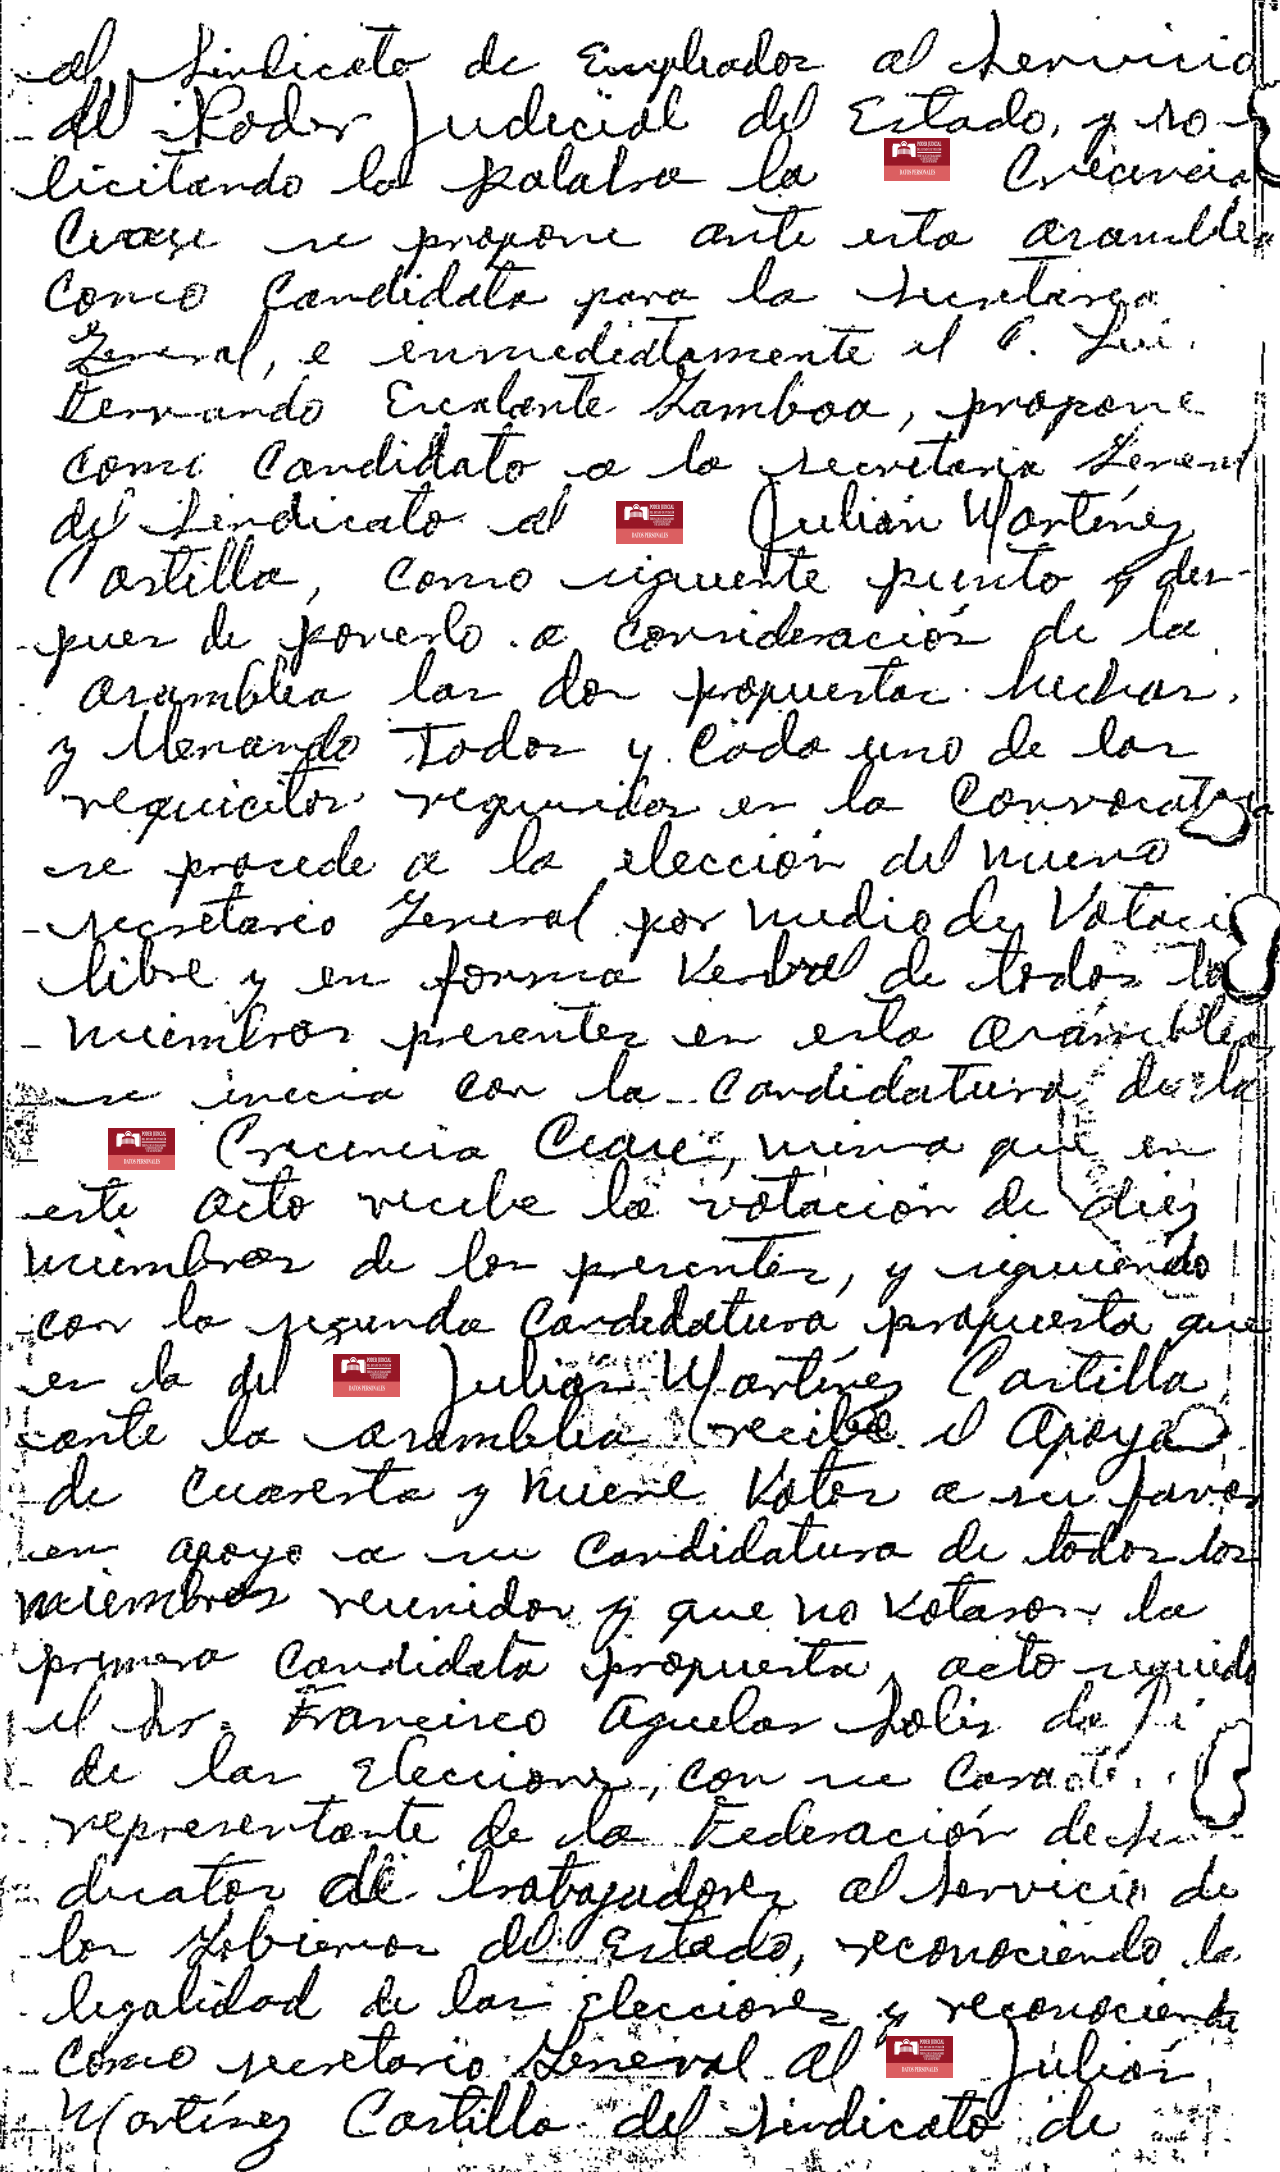 al Sindicato de Empleados al servicio
del Poder Judicial del Estado, y so-
licitando la palabra la PODER JUDICIAL DATOS PERSONALES Crecencia
se propone ante esta asamblea
como Candidata para la secretaria
General, e inmediatamente el C. Luis
Fernando Escalante Gamboa, propone
como Candidato a la secretaria General
del Sindicato al PODER JUDICIAL DATOS PERSONALES Julián Martínez
Castilla, como siguiente punto y des-
pues de ponerlo a consideración de la
asamblea las dos propuestas hechas,
y llenando Todos y cada uno de los
requicitos requeridos en la Convocatoria
se procede a la elección del nuevo
secretario General por medio de Votaci
libre y en forma Verbal de todos lo
miembros presentes en esta asamblea
se inicia con la candidatura de la
PODER JUDICIAL DATOS PERSONALES Crecencia, misma que en
este acto recibe la votación de diez
miembros de los presentes, y siguiendo
con la segunda Candidatura propuesta que
es la del PODER JUDICIAL DATOS PERSONALES Julián Martínez Castilla
ante la asamblea recibe el apoyo
de Cuarenta y Nueve Votos a su favor
en apoyo a su Candidatura de todos los
miembros reunidos y que no Votaron la
primera Candidata propuesta, acto seguido
el Sr. Francisco Aguilar Solis da
de las Elecciones, con su
representante de la Federación de Sin-
dicatos de trabajadores al servicio de
los Gobiernos del Estado, reconociendo la
legalidad de las elecciones y reconociendo
como secretario General al PODER JUDICIAL DATOS PERSONALES Julián
Martínez Castilla del sindicato de